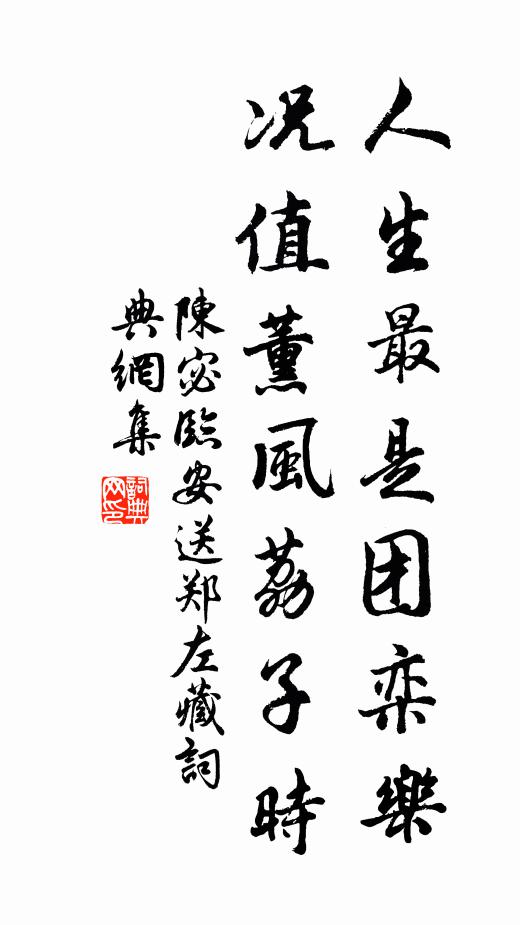 人生最是团栾樂
况值薰風荔子時
陳宓臨安送郑左藏詞
典網集
詞典
网印